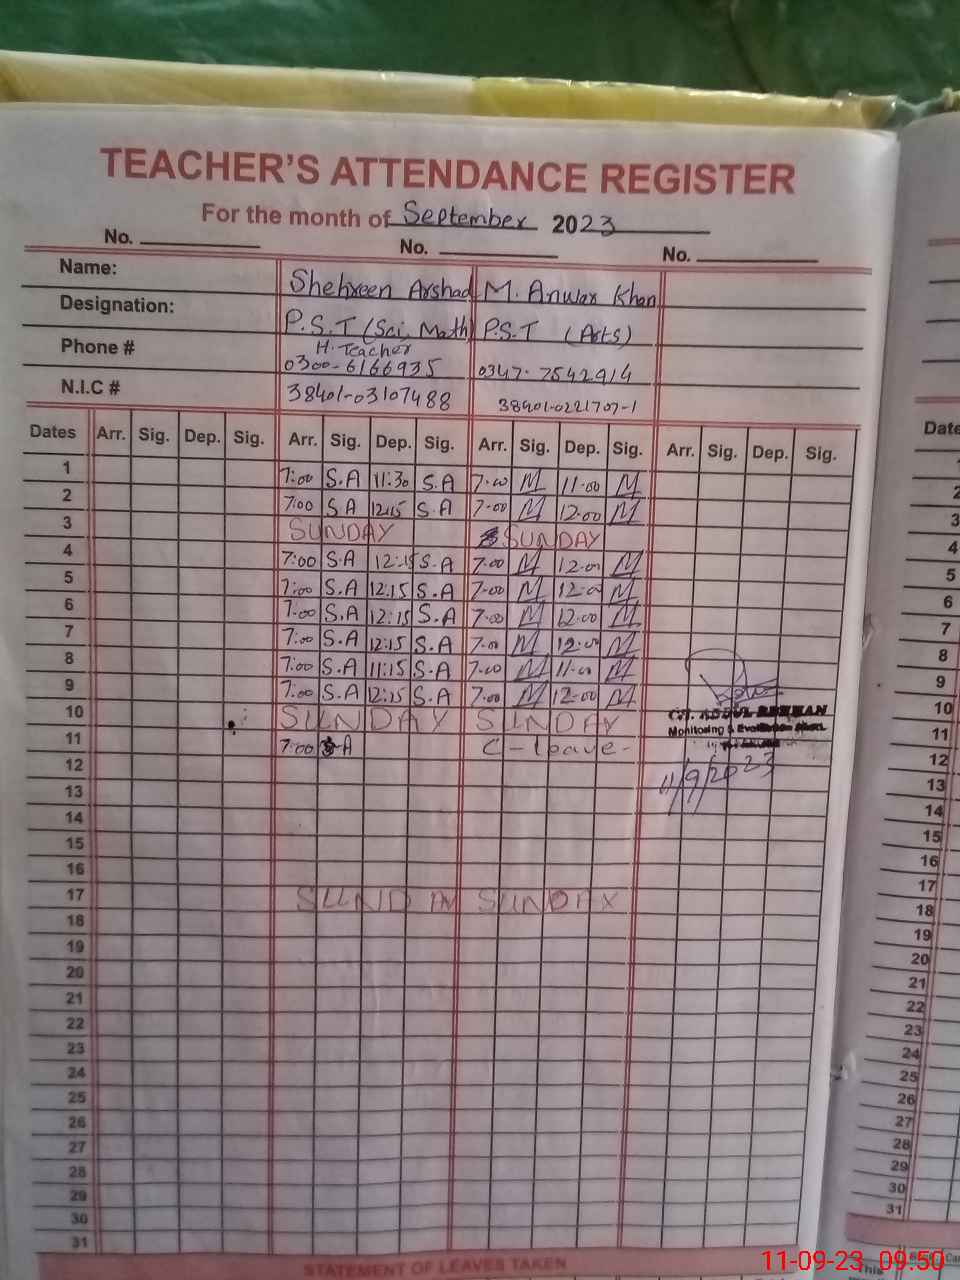 TEACHER'S ATTENDANCE REGISTER
For the month of September 2023
No. No. No.
Name: Shehreen Arshad M. Anwar Khan
Designation: P.S.T (Sci. Math) P.S.T (Arts)
H. Teacher
Phone # 0300-6166935 0347-7542914
N.I.C # 38401-03107488 38401-0221707-1
Dates Arr. Sig. Dep. Sig. Arr. Sig. Dep. Sig. Arr. Sig. Dep. Sig. Arr. Sig. Dep. Sig.
1 7:00 S.A 11:30 S.A 7-00 M 11-00 M
2 7:00 S.A 12:15 S.A 7-00 M 12-00 M
3 SUNDAY SUNDAY
4 7:00 S.A 12:15 S.A 7-00 M 12-00 M
5 7:00 S.A 12:15 S.A 7-00 M 12-00 M
6 7:00 S.A 12:15 S.A 7-00 M 12-00 M
7 7:00 S.A 12:15 S.A 7-00 M 12-00 M
8 7:00 S.A 11:15 S.A 7-00 M 11-00 M
9 7:00 S.A 12:15 S.A 7-00 M 12-00 M
10 SUNDAY SUNDAY
CH. ABDUL REHMAN
Monitoring &
11 7:00 S.A C-leave-
11/9/2023
12
13
14
15
16
17 SUNDAY SUNDAY
18
19
20
21
22
23
24
25
26
27
28
29
30
31
STATEMENT OF LEAVES TAKEN
Date
2
3
4
5
6
7
8
9
10
11
12
13
14
15
16
17
18
19
20
21
22
23
24
25
26
27
28
29
30
31
This
11-09-23 09:50